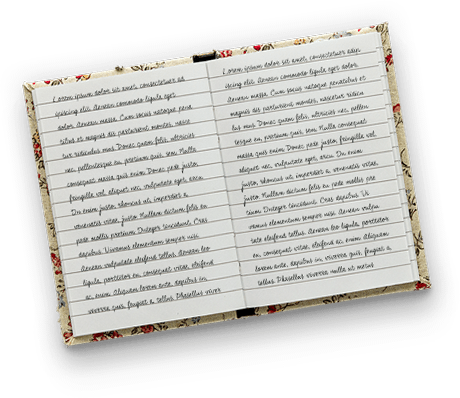 Lorem ipsum dolor sit amet, consectetuer ad
ipiscing elit. Aenean commodo ligula eget
dolor. Aenean massa. Cum sociis natoque pena
tibus et magnis dis parturient montes, nasce
tur ridiculus mus. Donec quam felis, ultricies
nec, pellentesque eu, pretium quis, sem. Nulla
consequat massa quis enim. Donec pede justo,
fringilla vel, aliquet nec, vulputate eget, arcu.
In enim justo, rhoncus ut, imperdiet a,
venenatis vitae, justo. Nullam dictum felis eu
pede mollis pretium. Integer tincidunt. Cras
dapibus. Vivamus elementum semper nisi.
Aenean vulputate eleifend tellus. Aenean leo
ligula, porttitor eu, consequat vitae, eleifend
ac, enim. Aliquam lorem ante, dapibus in,
viverra quis, feugiat a, tellus. Phasellus viver
Lorem ipsum dolor sit amet, consectetuer adip
iscing elit. Aenean commodo ligula eget dolor.
Aenean massa. Cum sociis natoque penatibus et
magnis dis parturient montes, nascetur ridicu
lus mus. Donec quam felis, ultricies nec, pellen
tesque eu, pretium quis, sem. Nulla consequat
massa quis enim. Donec pede justo, fringilla vel,
aliquet nec, vulputate eget, arcu. In enim
justo, rhoncus ut, imperdiet a, venenatis vitae,
justo. Nullam dictum felis eu pede mollis pre
tium. Integer tincidunt. Cras dapibus. Vi
vamus elementum semper nisi. Aenean vulpu
tate eleifend tellus. Aenean leo ligula, porttitor
eu, consequat vitae, eleifend ac, enim. Aliquam
lorem ante, dapibus in, viverra quis, feugiat a,
tellus. Phasellus viverra nulla ut metus